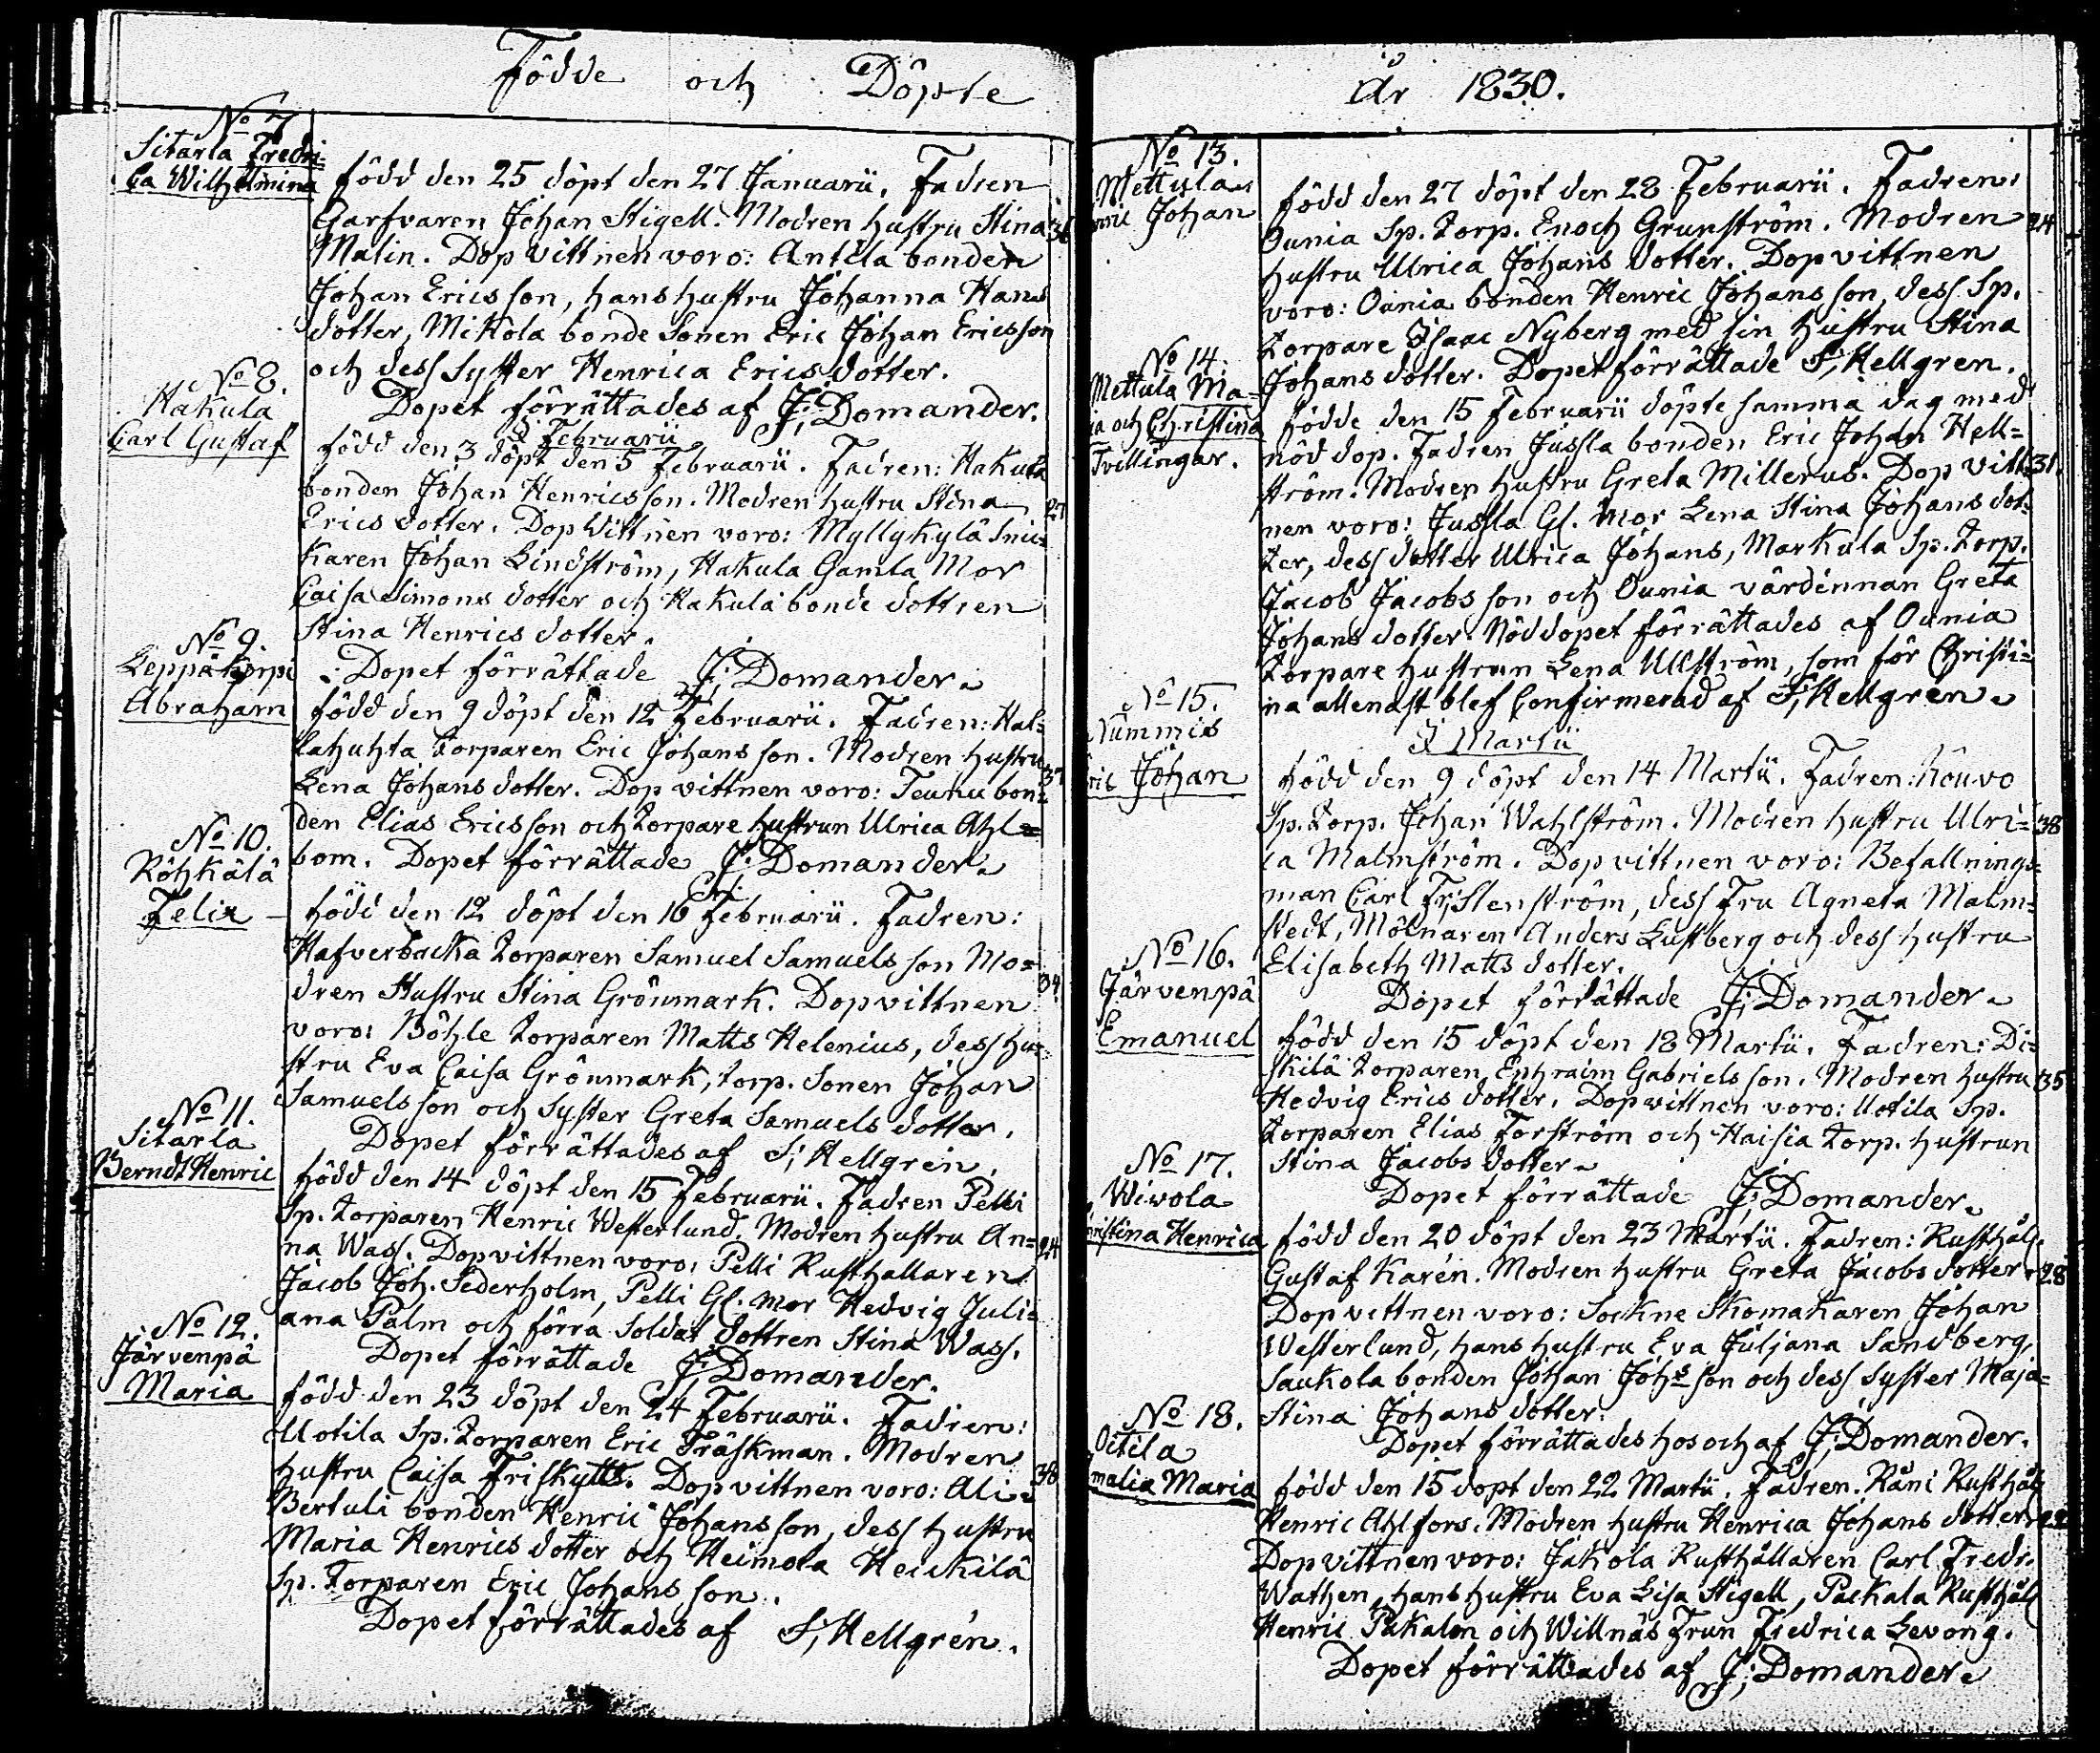 Födde och Döpte
No 7
Sitarla Fredri-
ca Wilhelmina
född den 25 döpt den 27 Januarii. Fadren
Garfvaren Johan Stigell. Modren hustru Stina 36
Malin. Dop vittnen voro: Antila bonden
Johan Ericsson, hans hustru Johanna Hans
dotter, Mikola bonde Sonen Eric Johan Ericsson
och dess Syster Henrica Erics dotter.
Dopet förrättades af J: Domander.
No 8.
Hakula
Carl Gustaf
Februarii
född den 3 döpt den 5 Februarii. Fadren: Hakula
bonden Johan Henricsson. Modren hustru Stina 27
Erics dotter. Dop Wittnen voro: Myllykylä Snic=
karen Johan Lindström, Hakula Gamla Mor
Caisa Simons dotter och Hakula bonde dottren
Stina Henrics dotter.
Dopet förrättade J: Domander.
No 9.
Leppäkorpi
Abraham
född den 9 döpt den 12 Februarii. Fadren: Hal=
lahuhta torparen Eric Johansson. Modren hustru 37
Lena Johans dotter. Dop vittnen voro: Teunu bon=
den Elias Ericsson och torpare hustrun Ulrica Ahl=
bom. Dopet förrättade J: Domander.
No 10.
Röhkälä
Felix
född den 12 döpt den 16 Februarii. Fadren:
Hafverbacka torparen Samuel Samuelsson Mo=
dren Hustru Stina Grönmark. Dopvittnen 34
voro: Böhle torparen Matts Helenius, dess hu=
stru Eva Caisa Grönmark, torp. Sonen Johan
Samuelsson och Syster Greta Samuels dotter.
Dopet förrättades af S; Hellgren.
No 11.
Sitarla
Berndt Henric
född den 14 döpt den 15 Februarii. Fadren Pelli
Sp. torparen Henric Westerlund. Modren hustru An= 24
na Wass. Dopvittnen voro: Pelli Rusthallaren
Jacob Joh. Sederholm, Pelli Gl. mor Hedvig Juli=
ana Palm och förra soldat dottren Stina Wass.
Dopet förrättade J: Domander.
No 12.
Järvenpä
Maria
född den 23 döpt den 24 Februarii. Fadren:
Uotila Sp. torparen Eric Träskman. Modren
hustru Caisa Friskytts. Dop vittnen voro: Ali= 38
Bertuli bonden Henric Johansson, dess hustru
Maria Henrics dotter och Heimola Heickilä
Sp. torparen Eric Johansson.
Dopet förrättades af S; Hellgrén.
År 1830.
No 13.
Mettula
Johan
född den 27 döpt den 28 Februarii. Fadren:
Ounia Sp. torp. Enoch Grunström. Modren 24
hustru Ulrica Johans dotter. Dopvittnen
voro: Ounia bonden Henric Johansson, dess Sp.
torpare Isaac Nyberg med sin hustru Stina
Johans dotter. Dopet förrättade S; Hellgren.
No 14.
Mettula Ma=
ia och Christina
Tvillingar.
födde den 15 Februarii döpte samma dag med
nöd dop. Fadren Jussla bonden Eric Johan Hell=
ström. Modren hustru Greta Millerus. Dop vitt= 31.
nen voro: Jussla Gl. mor Lena Stina Johans dot=
ter, dess dotter Ulrica Johans, Markula Sp. torp.
Jacob Jacobsson och Ounia värdinnan Greta
Johans dotter. Nöddopet förrättades af Ounia
torpare hustrun Lena Ullström, som för Christi=
na allenast blef Confirmerad af S; Hellgren.
No 15.
Nummis
ric Johan
I Martii
född den 9 döpt den 14 Martii. Fadren: Houvo
Sp. torp. Johan Wahlström. Modren hustru Ulri= 38
ca Malmström. Dop vittnen voro: Befallnings=
man Carl Fr; Stenström, dess Fru Agneta Malm=
stedt, Mölnaren Anders Lustberg och dess hustru
Elisabeth Matts dotter.
Dopet förrättade J: Domander.
No 16.
Järvenpä
Emanuel
född den 15 döpt den 18 Martii. Fadren: Di=
skilä torparen Ephraim Gabrielsson. Modren hustru 35
Hedvig Erics dotter. Dopvittnen voro: Uotila Sp.
torparen Elias Forström och Haisia torp. hustrun
Stina Jacobs dotter.
Dopet förrättade J: Domander.
No 17.
Wiwola
ristina Henrica
född den 20 döpt den 23 Martii. Fadren: Rusthåll.
Gustaf Karén. Modren hustru Greta Jacobs dotter. 28
Dop vittnen voro: Sockne Skomakaren Johan
Westerlund, hans hustru Eva Juljana Sandberg,
Saukola bonden Johan Johs son och dess syster Maja=
Stina Johans dotter.
Dopet förrättades hos och af J: Domander.
No 18.
Oitila
malia Maria
född den 15 döpt den 22 Martii. Fadren. Räni Rusthåll
Henric Ahlfors. Modren hustru Henrica Johans dotter. 22
Dop vittnen voro: Jakola Rusthållaren Carl Fredr.
Wathen, hans hustru Eva Lisa Stigell, Packala Rusthåll
Henric Pakalen och Willnäs Frun Fredrica Levong.
Dopet förrättades af J: Domander.